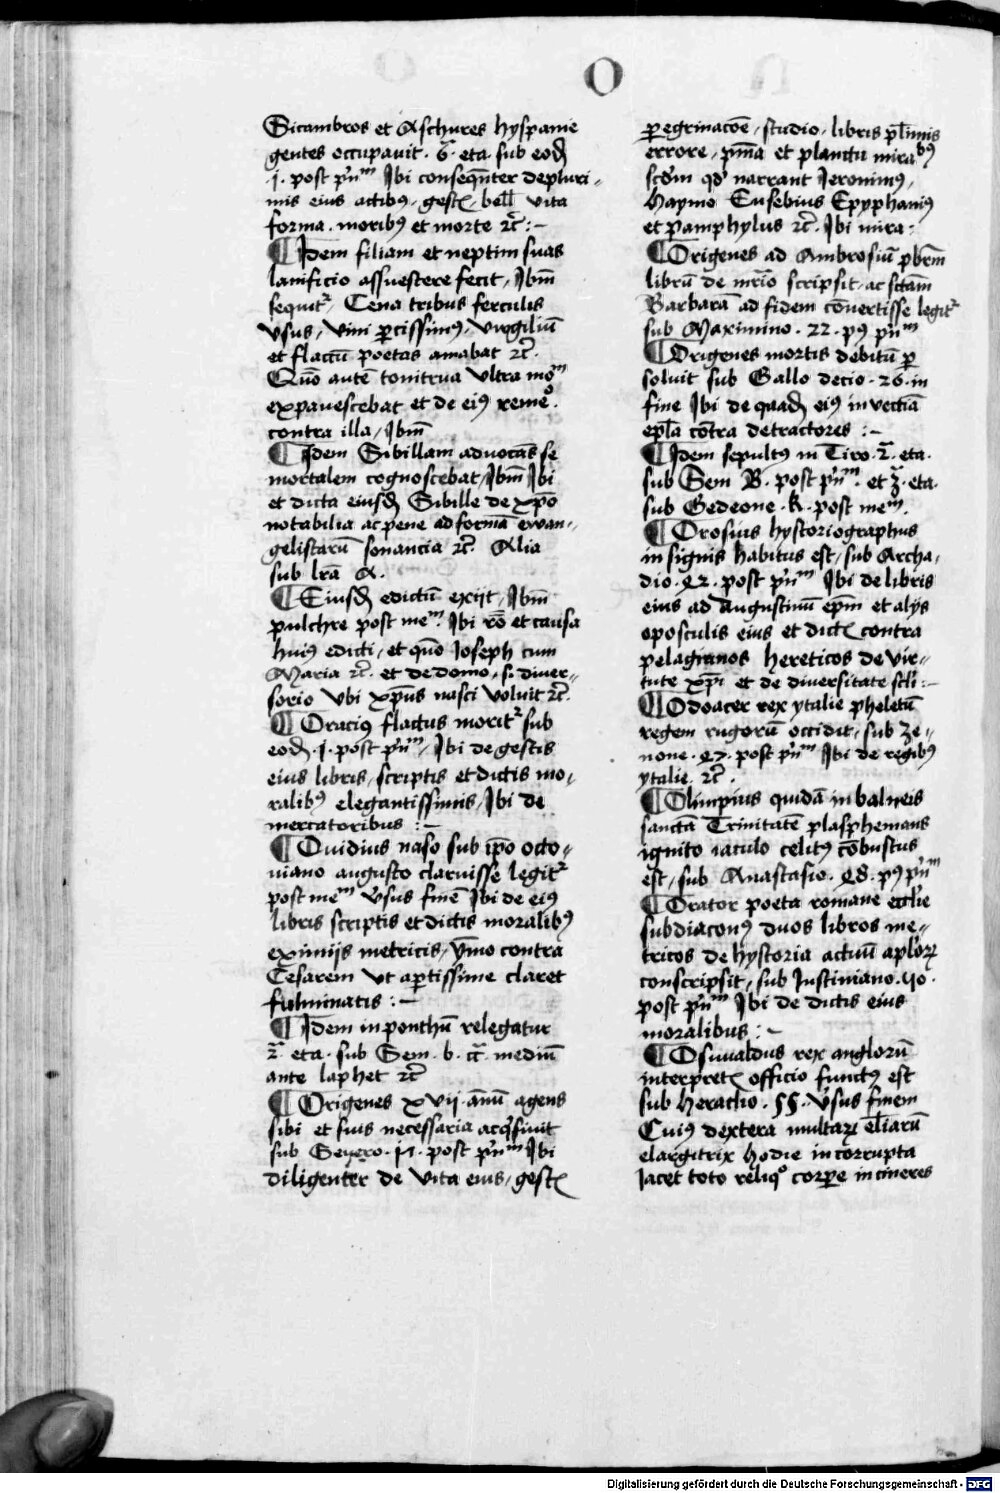 O
Sicambros et Aschures hyspanie
gentes occupauit · 6ᵃ · eta · sub eod̄
· j · post p̄nᵐ Ibi conseq̄nter depluri-
mis eius actibꝰ, gest', bell' vita
forma · moribꝰ et morte ꝛc̄ : —
¶ Idem filiam et neptim suas
lanificio assuescere fecit, Ibm̄
sequitʳ, Cena tribus ferculis
vsus, vini ꝑcissimꝰ, virgiliū
et flaccū poetas amabat ꝛc̄ ·
Quō autē tonitrua vltra moᵐ
expauescebat et de eiꝰ remeᵒ
contra illa, Ibm̄
¶ Idem Sibillam aduocās se
mortalem cognoscebat, Ibm̄ Ibi
et dicta eiusd̄ Sibille de xp̄o
notabilia ac pene ad formā ewan-
gelistarū sonancia ꝛc̄ · Alia
sub lr̄a A ·
¶ Eiusd̄ edictū exijt, Ibm̄
pulchre post meᵐ · Ibi rō et causa
huiꝰ edicti, et quō Ioseph cum
Maria ꝛc̄ · et de domo, s · diuer-
sorio vbi xp̄us nasci voluit ꝛc̄ ·
¶ Oraciꝰ flactus moritʳ sub
eod̄ · j · post p̄nᵐ, Ibi de gestis
eius libris, scriptis et dictis mo-
ralibꝰ elegantissimis, Ibi de
mercatoribus : —
¶ Ouidius naso sub ip̄o octo-
uiano augusto claruisse legitʳ
post meᵐ v̄sus finē Ibi de eiꝰ
libris scriptis et dictis moralibꝰ
eximijs metricis, ymo contra
Cesarem vt aꝑtissime claret
fulminatis : —
¶ Idem in ponthū relegatur
2ᵃ · eta · sub Sem · b · cᵃ mediū
ante Iaphet ꝛc̄
¶ Origenes xvij · annū agens
sibi et suis necessaria acq̄siuit
sub Seuero · post p̄nᵐ Ibi
diligenter de vita eius, gest'
ꝑegrinacōe, studio, libris pl'imis
errore, pn̄ia et planctu mirabꝰ
scd̄m qd̄ narrant Ieronimꝰ,
Haymo Eusebius Epyphaniꝰ
et pamphylus ꝛc̄ · Ibi mira :
¶ Origenes ad Ambrosiū pbr̄m
librū de mr̄io scripsit, ac sctām
Barbarā ad fidem cōuertisse legitʳ
sub Maximino · 22 · pꝰ p̄nᵐ
¶ Origenes mortis debitū ꝑ
soluit sub Gallo decio · 26 · in
fine Ibi de quad̄ eiꝰ inuectiā
epl̄a cōtra detractores : —
¶ Idem sepultꝰ in Tiro · 2ᵃ · eta ·
sub Sem B · post p̄nᵐ · et 3ᵃ · eta ·
sub Gedeone · k · post meᵐ ·
¶ Orosius hystoriographus
insignis habitus est, sub Archa-
dio · 42 · post p̄nᵐ Ibi de libris
eius ad Augustinū ep̄m et alijs
oposculis eius et dict' contra
pelagianos hereticos de vir-
tute xp̄i et de diuersitate scl'i : —
¶ Odoacer rex ytalie pheletū
regem rugorū occidit, sub Ze-
none · 47 · post p̄nᵐ Ibi de regibꝰ
ytalie ꝛc̄ ·
¶ Olimpius quidā in balneis
sanctā Trinitatē plasphemans
ignito iaculo celitꝰ cōbustus
est, sub Anastasio · 48 · pꝰ p̄nᵐ
¶ Orator poeta romane eccl'ie
subdiaconꝰ duos libros me-
tricos de hystoria actuū apl'oꝝ
conscripsit, sub Iustiniano · 50 ·
post p̄nᵐ Ibi de dictis eius
moralibus : —
¶ Osuualdus rex anglorū
interpret' officio functꝰ est
sub heraclio · 55 · v̄sus finem
Cuiꝰ dextera multaꝝ el'iarū
elargitrix hodie incorrupta
Iacet toto reliqᵒ corꝑe in cineres
Digitalisierung gefördert durch die Deutsche Forschungsgemeinschaft - DFG